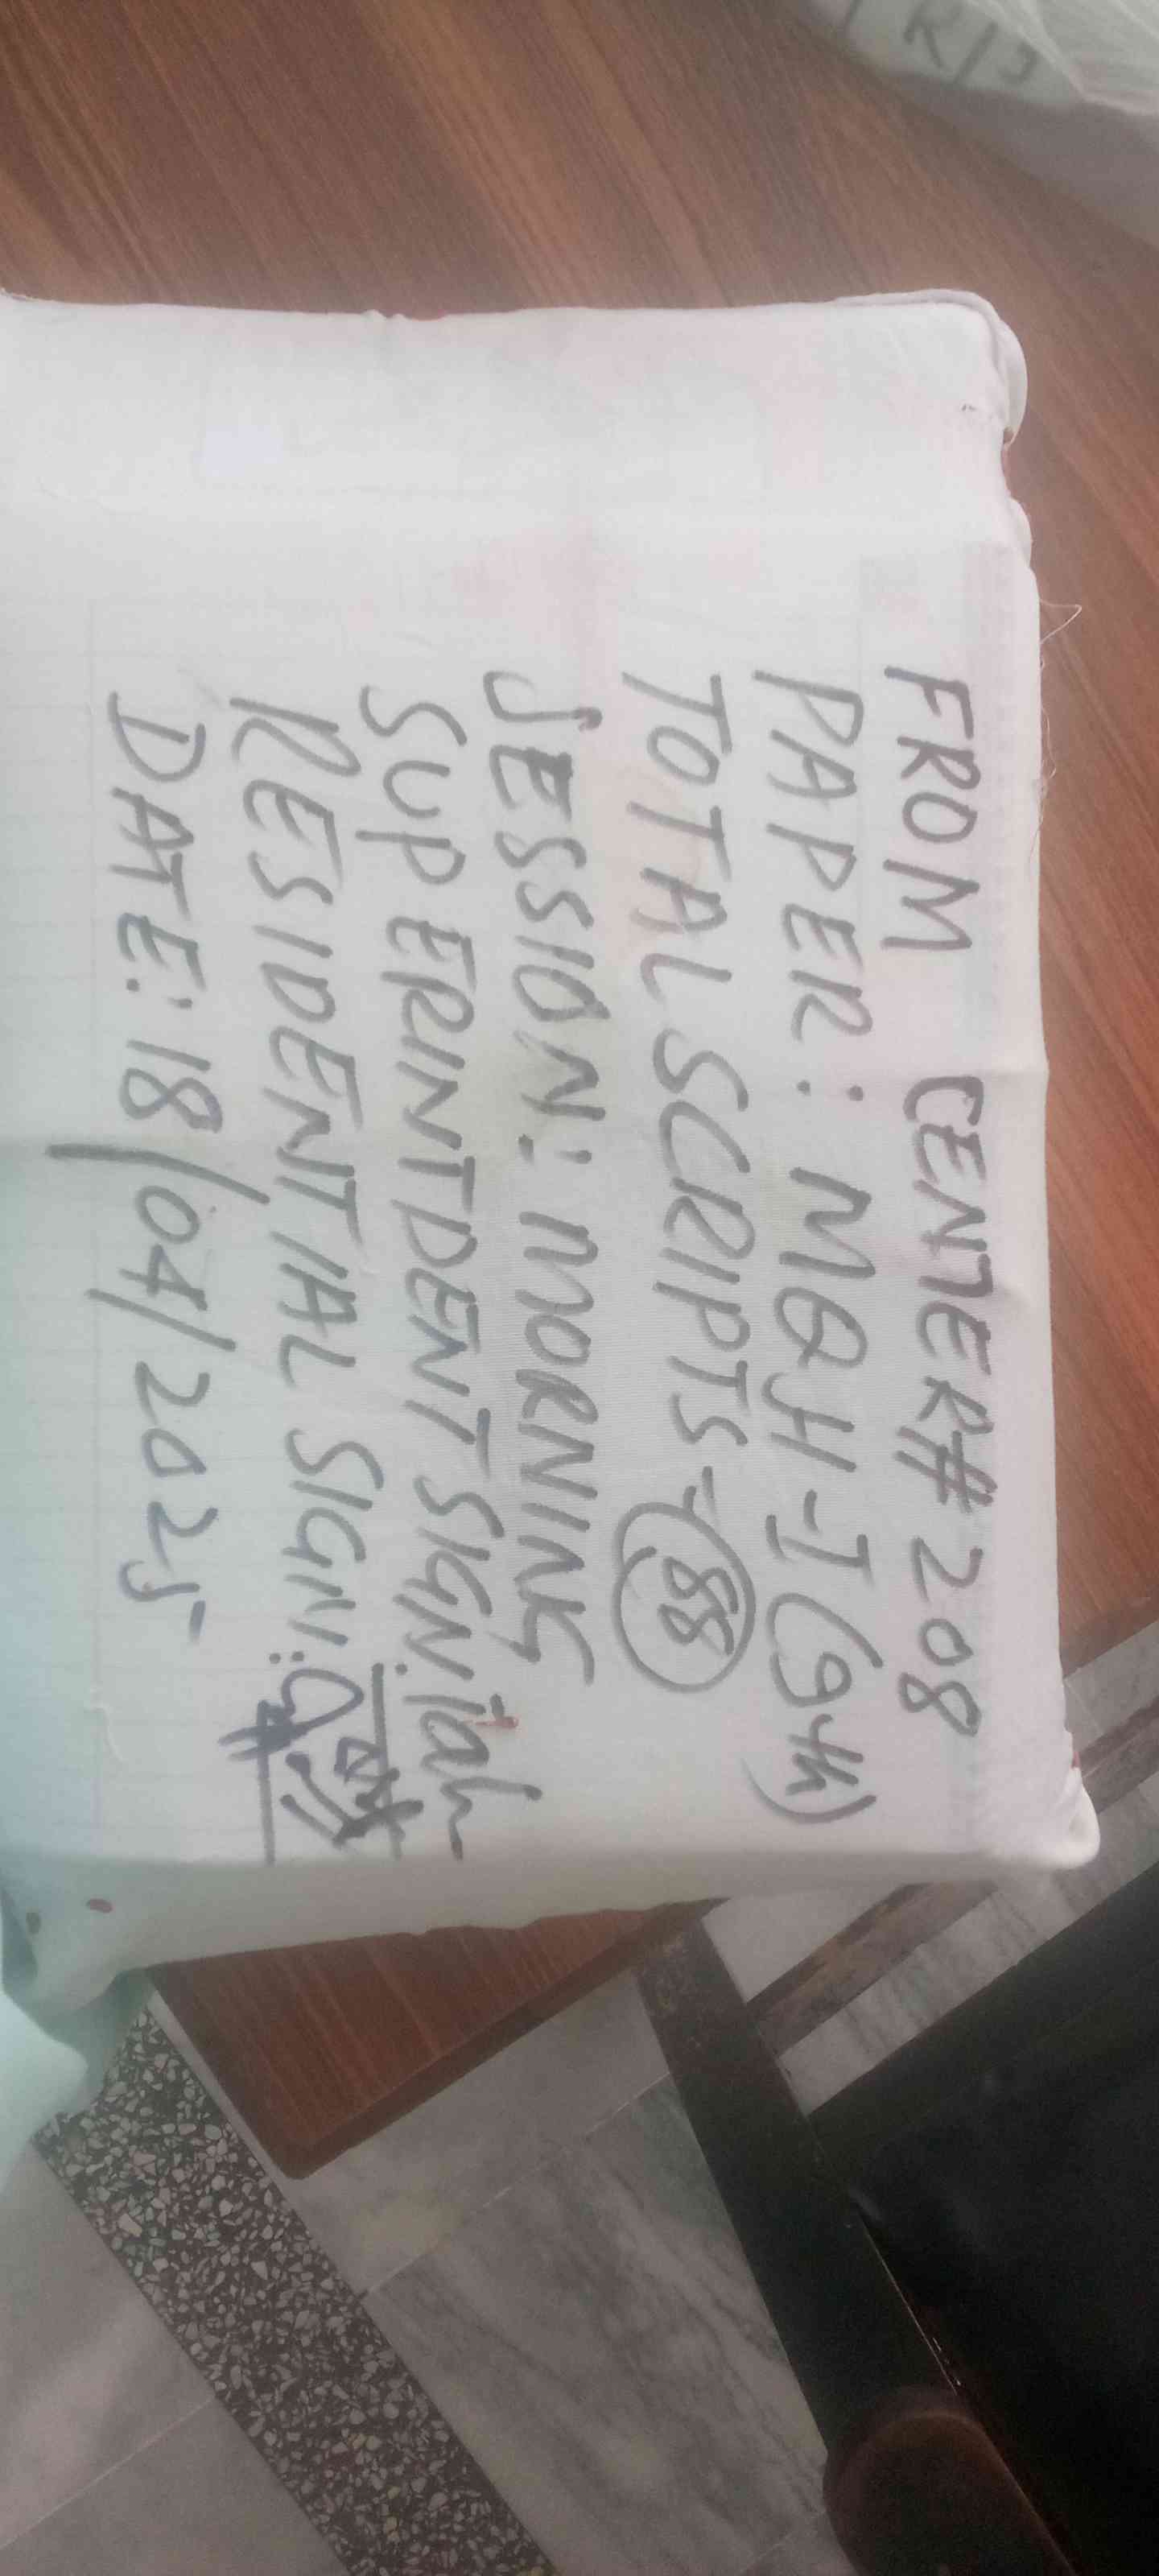 FROM CENTER# 208
PAPER: MQH-I (9th)
TOTAL SCRIPTS - 88
SESSION: MORNING
SUPERINTDENT SIGN:
RESIDENTIAL SIGN:
DATE: 18/04/2025